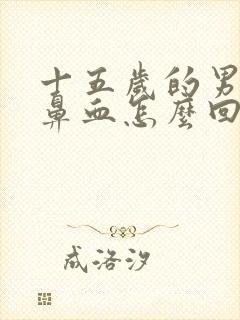 十五歲的男
鼻血怎麼回
成洛汐